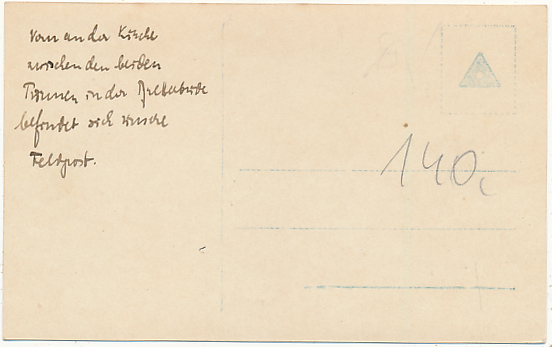 Vorn an der Kirche
zwischen den beiden
Türmen in der Bretterbude
befindet sich unsere
Feldpost.
140,